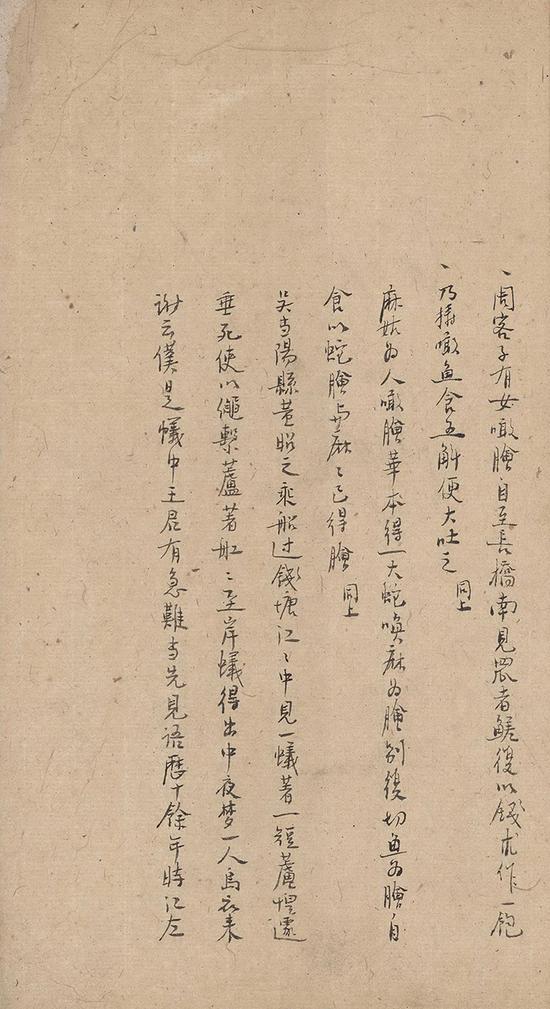 、周客子有女噉膾自至長橋南見罛者鱃後以錢求作一飽
、乃攥噉魚食五斛便大吐之 同上
麻姑为人噉膾華本得一大蛇喚麻为膾別後切魚为膾自
食以蛇膾与麻〻已得膾 同上
吴当陽縣董昭之乘船过錢塘江〻中見一蟻著一短蘆惶遽
垂死使以繩繫蘆著舡〻至岸蟻得出中夜梦一人烏衣来
谢云僕是蟻中王君有急難当先見语歷十餘年時江左